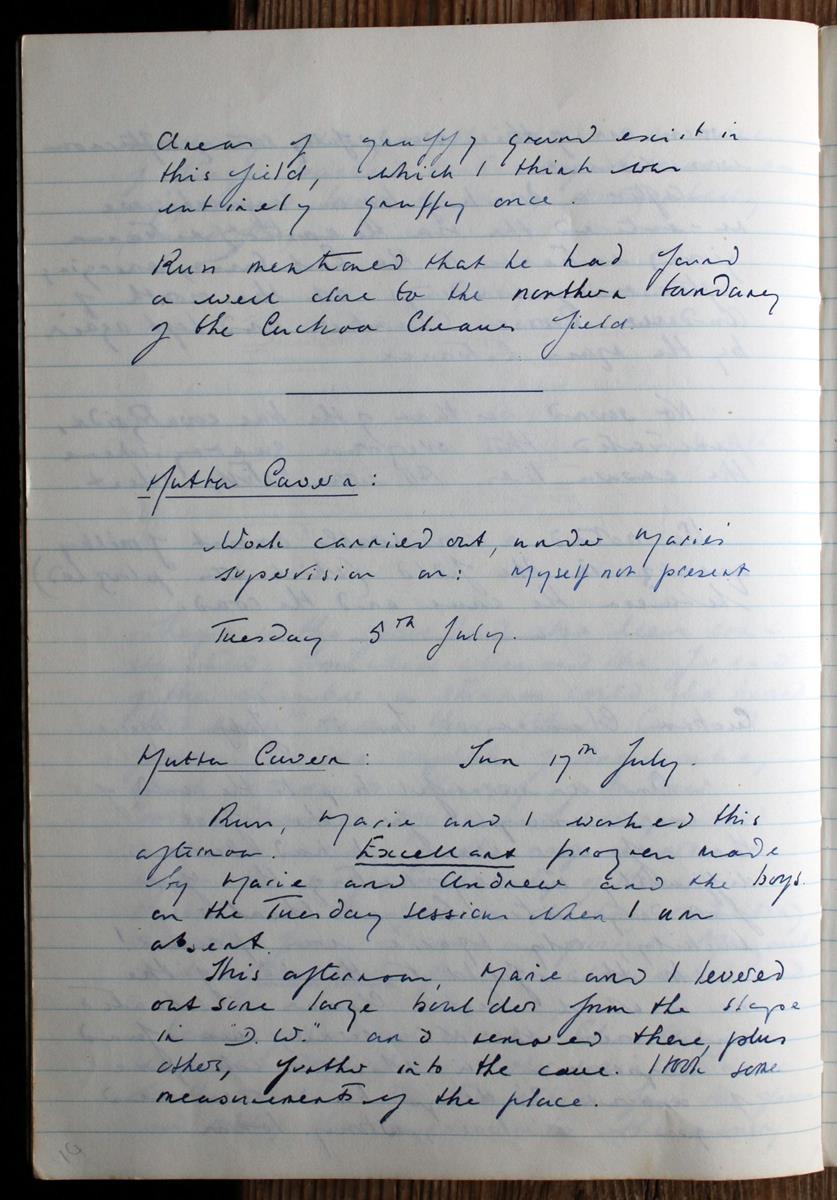 Areas of gruffy ground exist in
this field, which I think was
entirely gruffy once.
Russ mentioned that he had found
a well close to the northern boundary
of the Cuckoo Cleaves field.
Hutton Cavern:
Work carried out, under Marie's
supervision on: Myself not present
Tuesday 5th July.
Hutton Cavern: Sun 17th July.
Russ, Marie and I worked this
afternoon. Excellent progress made
by Marie and Andrew and the boys.
on the Tuesday sessions when I am
absent.
This afternoon, Marie and I levered
out some large boulders from the slope
in "D.W." and removed these, plus
others, further into the cave. I took some
measurements of the place.
10